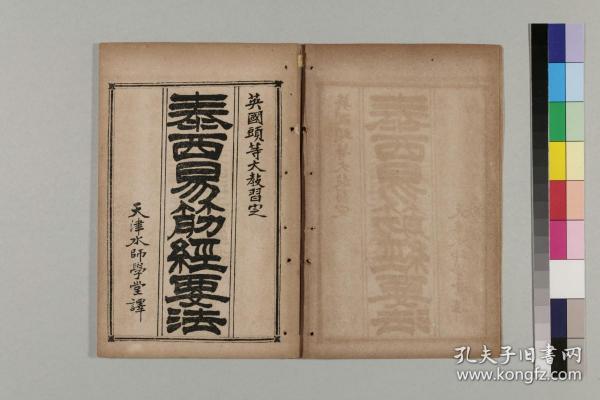 英國頭等大教習定
泰西易筋經要法
天津水師學堂譯
孔夫子旧书网
www.kongfz.com